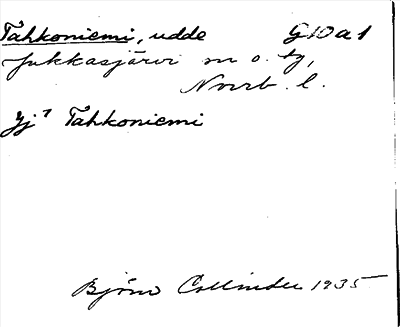 Tahkoniemi, udde G10a1
Jukkasjärvi sn o. tg,
Norrb. l.
Jj⁷ Tahkoniemi
Björn Collinder 1935